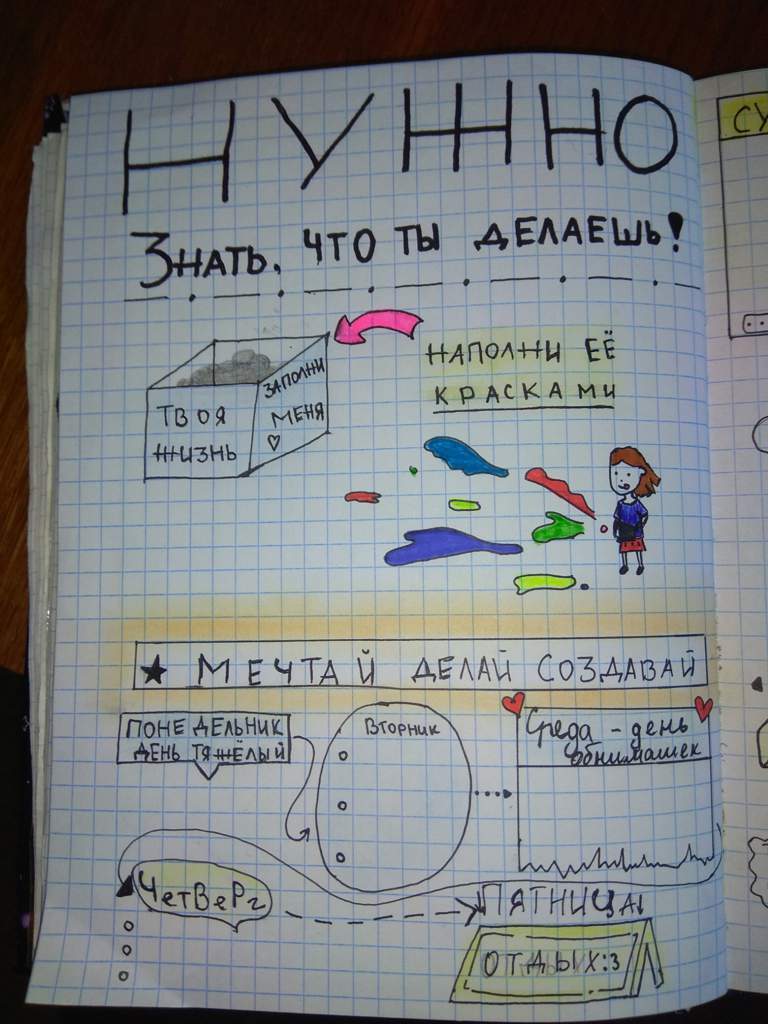 НУЖНО
Знать, что ты делаешь!
НАПОЛНИ ЕЁ
КРАСКАМИ
ТВОЯ
ЖИЗНЬ
ЗАПОЛНИ
МЕНЯ
♡
★ МЕЧТАЙ ДЕЛАЙ СОЗДАВАЙ
ПОНЕДЕЛЬНИК
ДЕНЬ ТЯЖЁЛЫЙ
Вторник
Среда - день
обнимашек
ЧетВеРг
ПЯТНИЦА!
ОТДЫХ:з
СУ